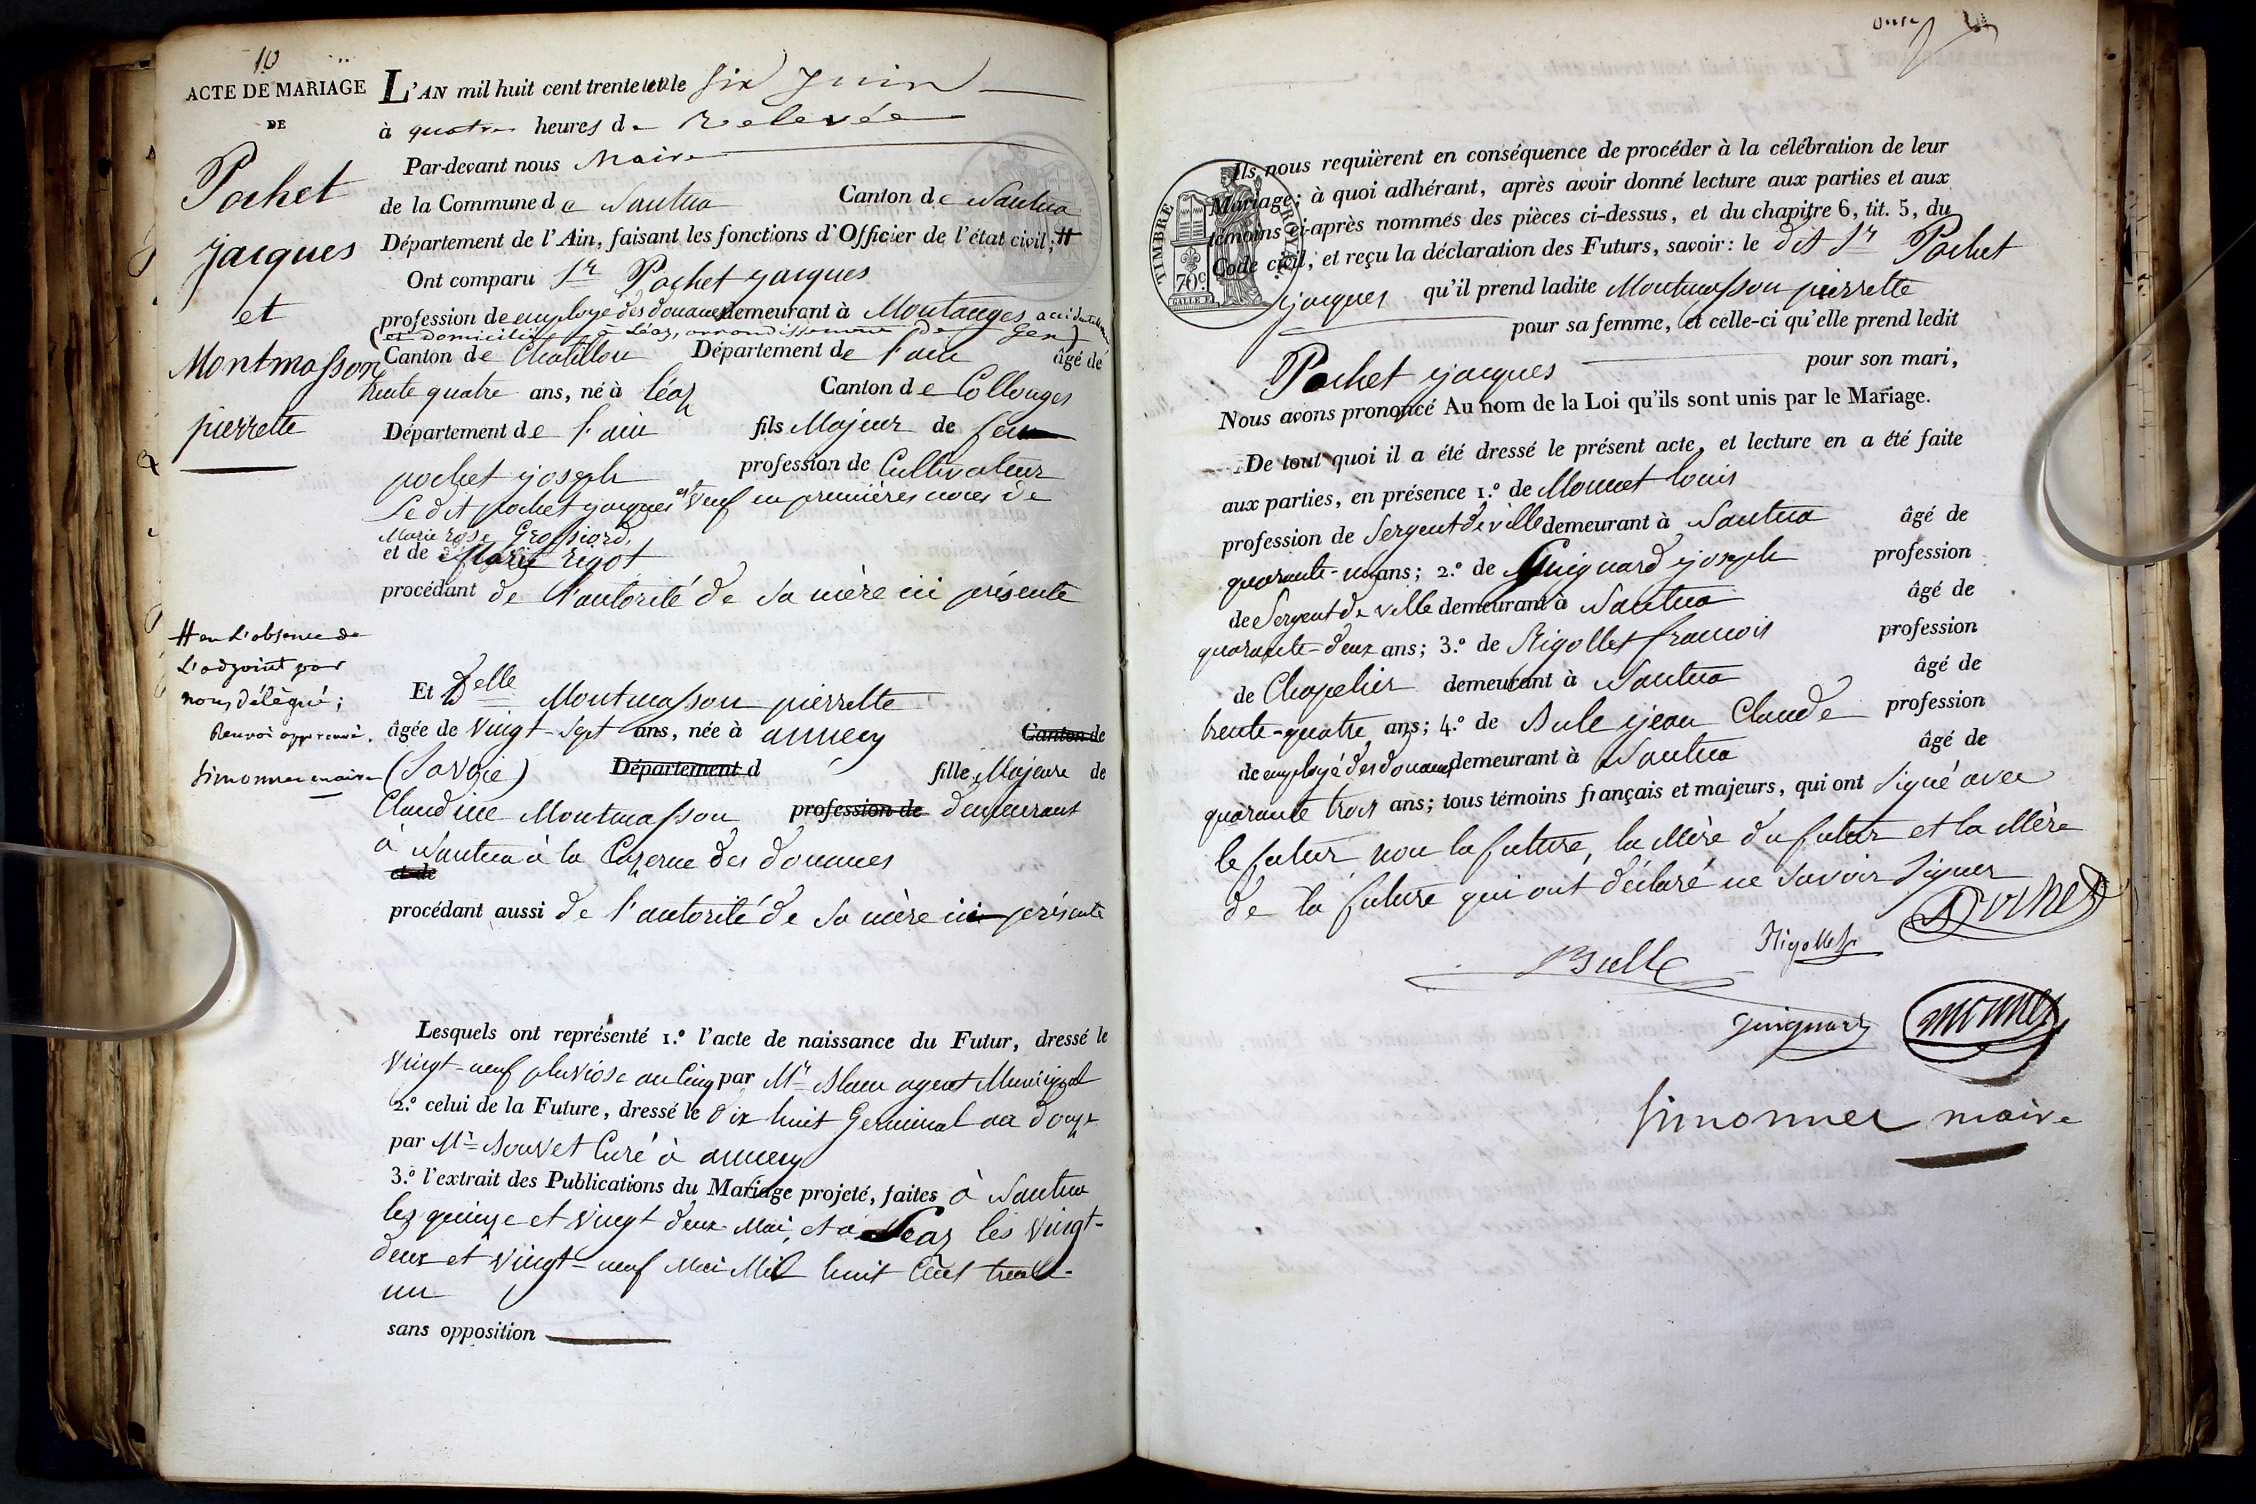 10
ACTE DE MARIAGE
DE
Pochet
jacques
et
Montmasson
pierrette
L'AN mil huit cent trente et un le six juin
à quatre heures de Relevée
Par-devant nous Maire
de la Commune de Nantua Canton de Nantua
Département de l'Ain, faisant les fonctions d'Officier de l'état civil; #
Ont comparu Sr. Pochet jacques
profession de employé des douanes demeurant à Montanges
(et domicilié à Léaz, arrondissement de Gex)
Canton de Chatillon Département de l'ain âgé de
trente quatre ans, né à Léaz Canton de Collonges
Département de l'ain fils Majeur de feu
pochet joseph profession de Cultivateur
Le dit pochet jacques est Veuf en premières noces de
Marie rose Grossiord,
et de Marie rigot
procédant de l'autorité de sa mère ici présente
# en l'absence de
L'adjoint par
nous délégué;
Renvoi approuvé.
Simonnet maire
Et Delle Montmasson pierrette
âgée de Vingt-sept ans, née à annecy Canton de
(Savoie) Département d fille Majeure de
Claudine Montmasson profession de demeurant
à Nantua à la Cazerne des douanes
et de
procédant aussi de l'autorité de sa mère ici présente
Lesquels ont représenté 1.º l'acte de naissance du Futur, dressé le
Vingt-neuf pluviose an Cinq par Mr. Blanc agent Municipal
2.º celui de la Future, dressé le Dix huit Germinal an douze
par Mr. Bouvet Curé à annecy
3.º l'extrait des Publications du Mariage projeté, faites à Nantua
les quinze et vingt deux Mai, et à Leaz les Vingt-
deux et Vingt-neuf Mai Mil huit Cent trente-
un
sans opposition
onze
TIMBRE ROYAL
70c
Ils nous requièrent en conséquence de procéder à la célébration de leur
Mariage; à quoi adhérant, après avoir donné lecture aux parties et aux
témoins ci-après nommés des pièces ci-dessus, et du chapitre 6, tit. 5, du
Code civil, et reçu la déclaration des Futurs, savoir: le dit Sr. Pochet
jacques qu'il prend ladite Montmasson pierrette
pour sa femme, et celle-ci qu'elle prend ledit
Pochet jacques pour son mari,
Nous avons prononcé Au nom de la Loi qu'ils sont unis par le Mariage.
De tout quoi il a été dressé le présent acte, et lecture en a été faite
aux parties, en présence 1.º de Monnet louis
profession de Sergent de ville demeurant à Nantua âgé de
quarante-un ans; 2.º de Guignard joseph profession
de Sergent de ville demeurant à Nantua âgé de
quarante-deux ans; 3.º de Rigollet francois profession
de Chapelier demeurant à Nantua âgé de
trente-quatre ans; 4.º de Bule jean Claude profession
de employé des douanes demeurant à Nantua âgé de
quarante trois ans; tous témoins français et majeurs, qui ont signé avec
le futur non la future, la Mère du futur et la Mère
de la future qui ont déclaré ne savoir signer
Pochet
Rigollet
Bulle
Guignard
monnet
Simonnet maire